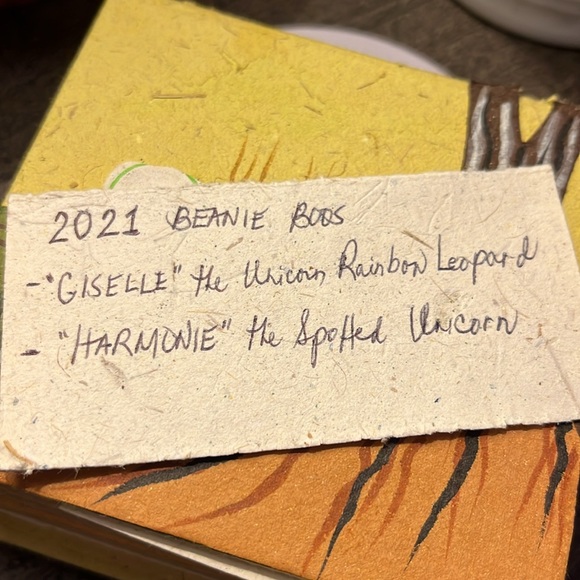 2021 BEANIE BOOS
- "GISELLE" the Unicorn Rainbow Leopard
- "HARMONIE" the Spotted Unicorn